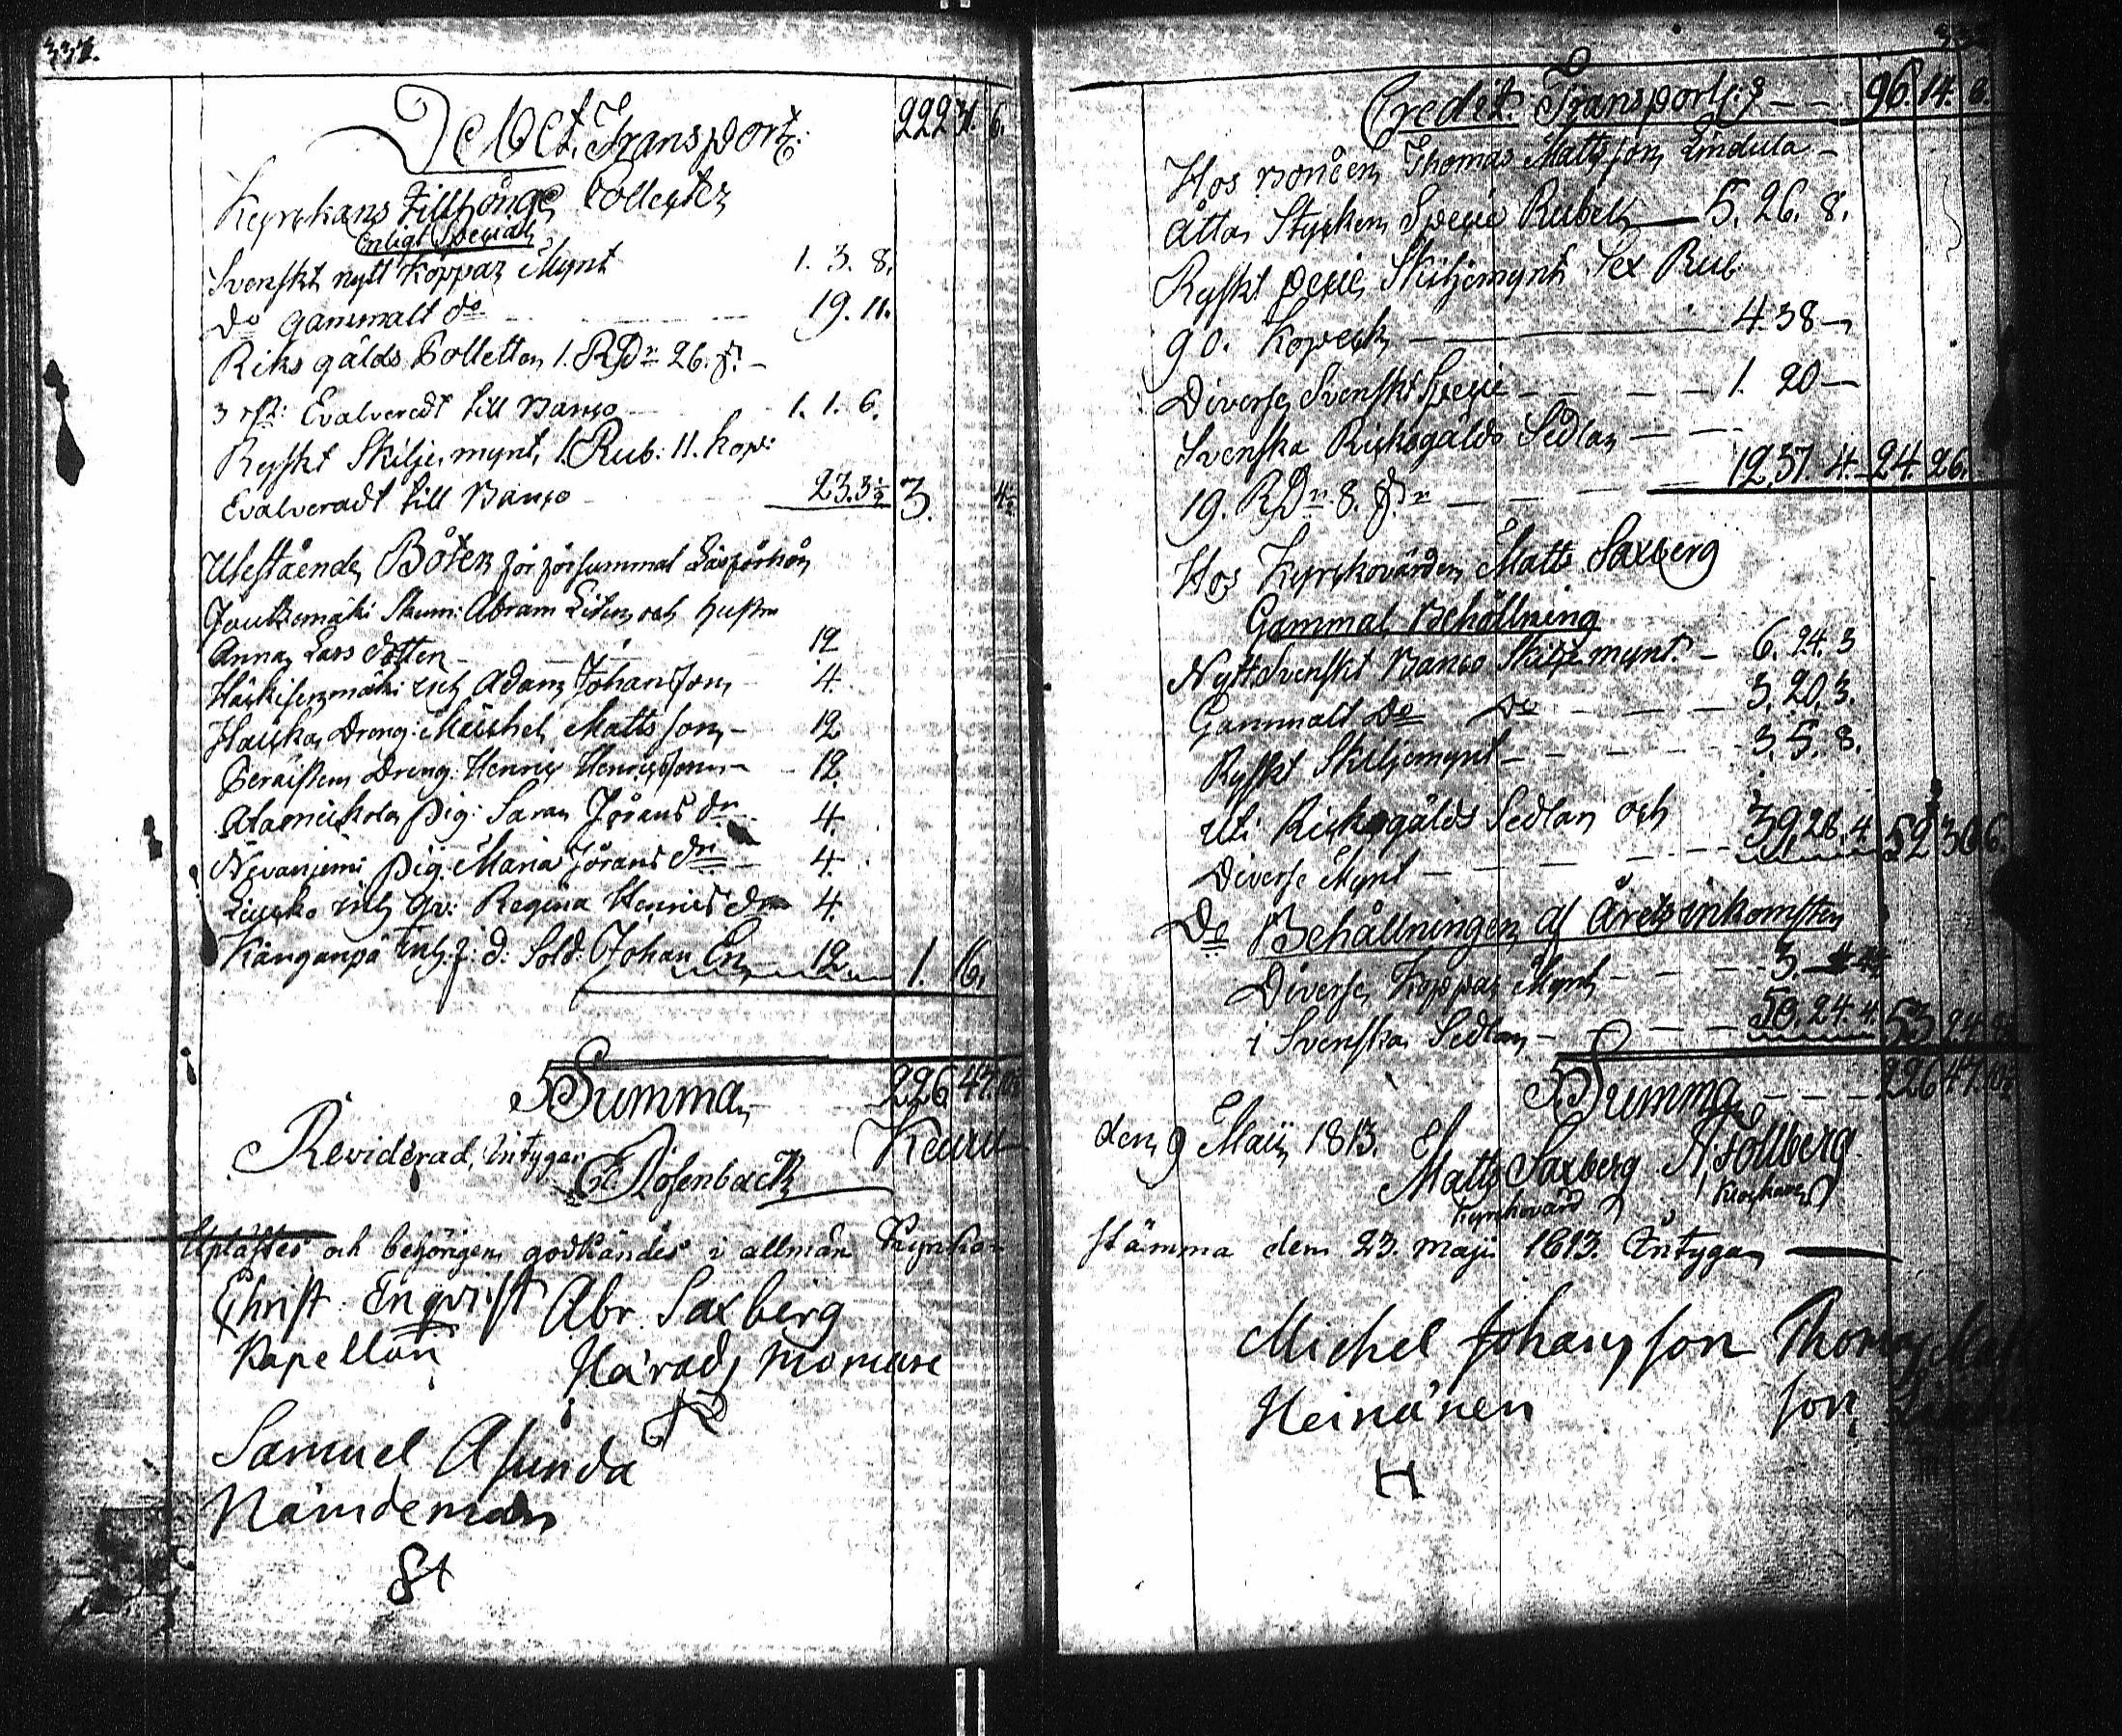 337.
Debet. Transport: 222 31. 6.
Kyrckans tillhörige Collecter
Enligt Special
Svenskt nytt Koppar Mynt 1. 3. 8.
Do Gammalt do 19. 11.
Riksgälds Polletter 1. RDr 26. s.
3 rst: Evalveradt till Banco 1. 1. 6.
Ryskt Skiljemynt, 1. Rub: 11. kop:
Evalveradt till Banco 23. 3½ 3. 4½
Utestående Böter för försummat Läsförhör
Abram Liten och hustru
Anna Lars dotter 12
inh Adam Johansson 4.
Hauka Dreng: Michel Mattsson 12
Dreng: Henric Henricsson 12
pig: Sara Jörans dr 4.
Nevaniemi pig: Maria Jörans dr 4.
Liucko inh qv: Regina Henrics dr 4.
Känganpä inh: f: d: Sold: Johan En 12 1. 16.
Summa 226 47.
Reviderad, intygar
Rosenback Keuru
Uplästes och behörigen godkändes i allmän Kyrko-
Christ. Enqvist Abr. Saxberg
Kapellan Härads
Samuel Asunda
Nämdeman
Credit: Transport: 96 14. 8.
Hos Bonden Thomas Mattsson Lindula
Åtta Stycken Specie Rubel 5. 26. 8.
Ryskt Specie Skiljemynt Sex Rub
90. Kopeck 4. 38
Diverse Svenskt Specie 1. 20
Svenska Ricksgälds Sedlar
19. RDr 8. s. 12. 37. 4. 24. 26.
Hos Kyrckovärden Matts Saxberg
Gammal Behållning
Nytt Svenskt Banco Skiljemynt 6. 24. 3
Gammalt Do Do 3. 20. 3.
Ryskt Skiljemynt 3. 5. 8.
Uti Ricksgälds Sedlar och
Diverse Mynt 39. 28. 4. 52 30 6.
Do Behållningen af årets inkomster
Diverse Koppar Mynt 3.
i Svenska Sedlar 50. 24. 4. 53 24.
Summa 226 47.
den 9 Maij 1813. Matts Saxberg Follberg
Kyrckovärd Klockare
stämma den 23. Maji 1813. Intygar
Michel Johansson Thomas
Heinänen son
H